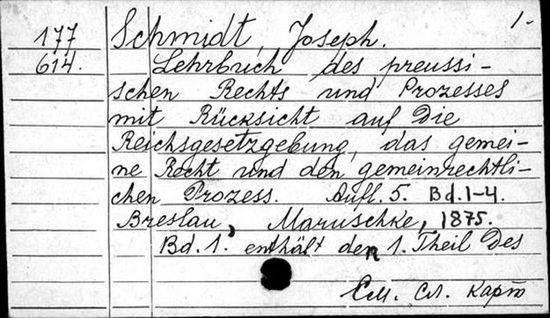 1-
177 Schmidt, Joseph.
614. Lehrbuch des preussi-
schen Rechts und Prozesses
mit Rücksicht auf die
Reichsgesetzgebung, das gemei-
ne Recht und den gemeinrechtli-
chen Prozess. Aufl. 5. Bd. 1-4.
Breslau, Maruschke, 1875.
Bd. 1. enthält den 1. Theil des
См. сл. карт